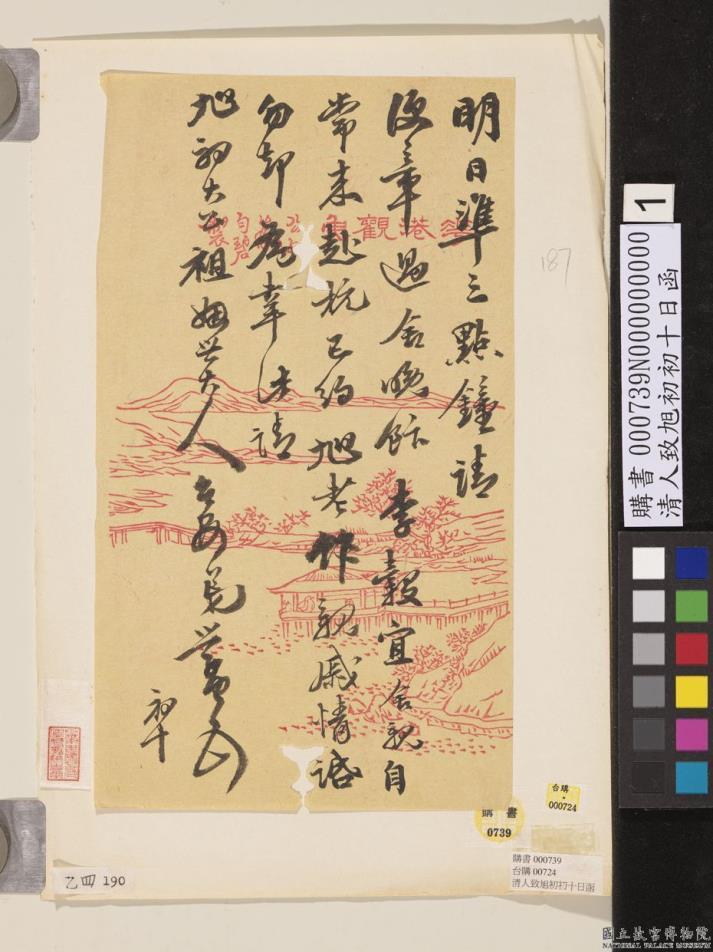 明日準三點鐘請
便章過舍晚飯 李穀宜舍親自
常來赴杭已約旭老作親戚情話
勿卻為幸此請
旭初大公祖姻世大人 台安
初十
花港觀魚
勻碧
製
187
1
購書 000739N000000000
清人致旭初初十日函
台購
000724
購書
0739
購書 000739
台購 00724
清人致旭初初十日函
乙四 190
國立故宮博物院
NATIONAL PALACE MUSEUM